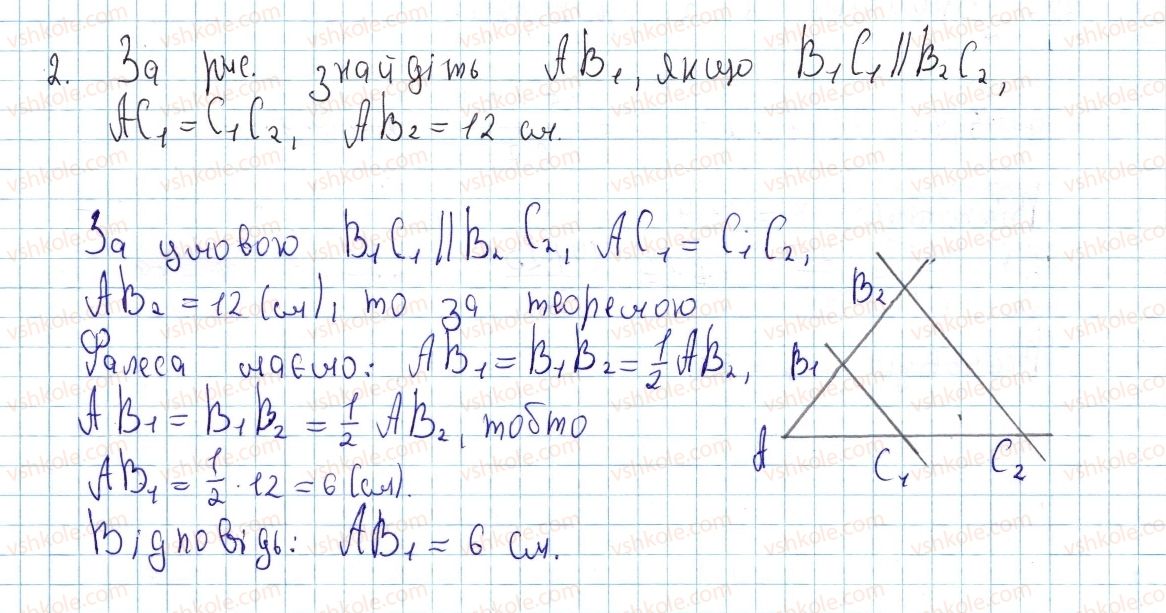 2. За рис. знайдіть AB₁, якщо B₁C₁ || B₂C₂,
AC₁ = C₁C₂, AB₂ = 12 см.
За умовою B₁C₁ || B₂C₂, AC₁ = C₁C₂,
AB₂ = 12 (см), то за теоремою
Фалеса маємо: AB₁ = B₁B₂ = 1/2 AB₂,
AB₁ = B₁B₂ = 1/2 AB₂, тобто
AB₁ = 1/2 · 12 = 6 (см).
Відповідь: AB₁ = 6 см.
B₂
B₁
A
C₁
C₂
vshkole.com